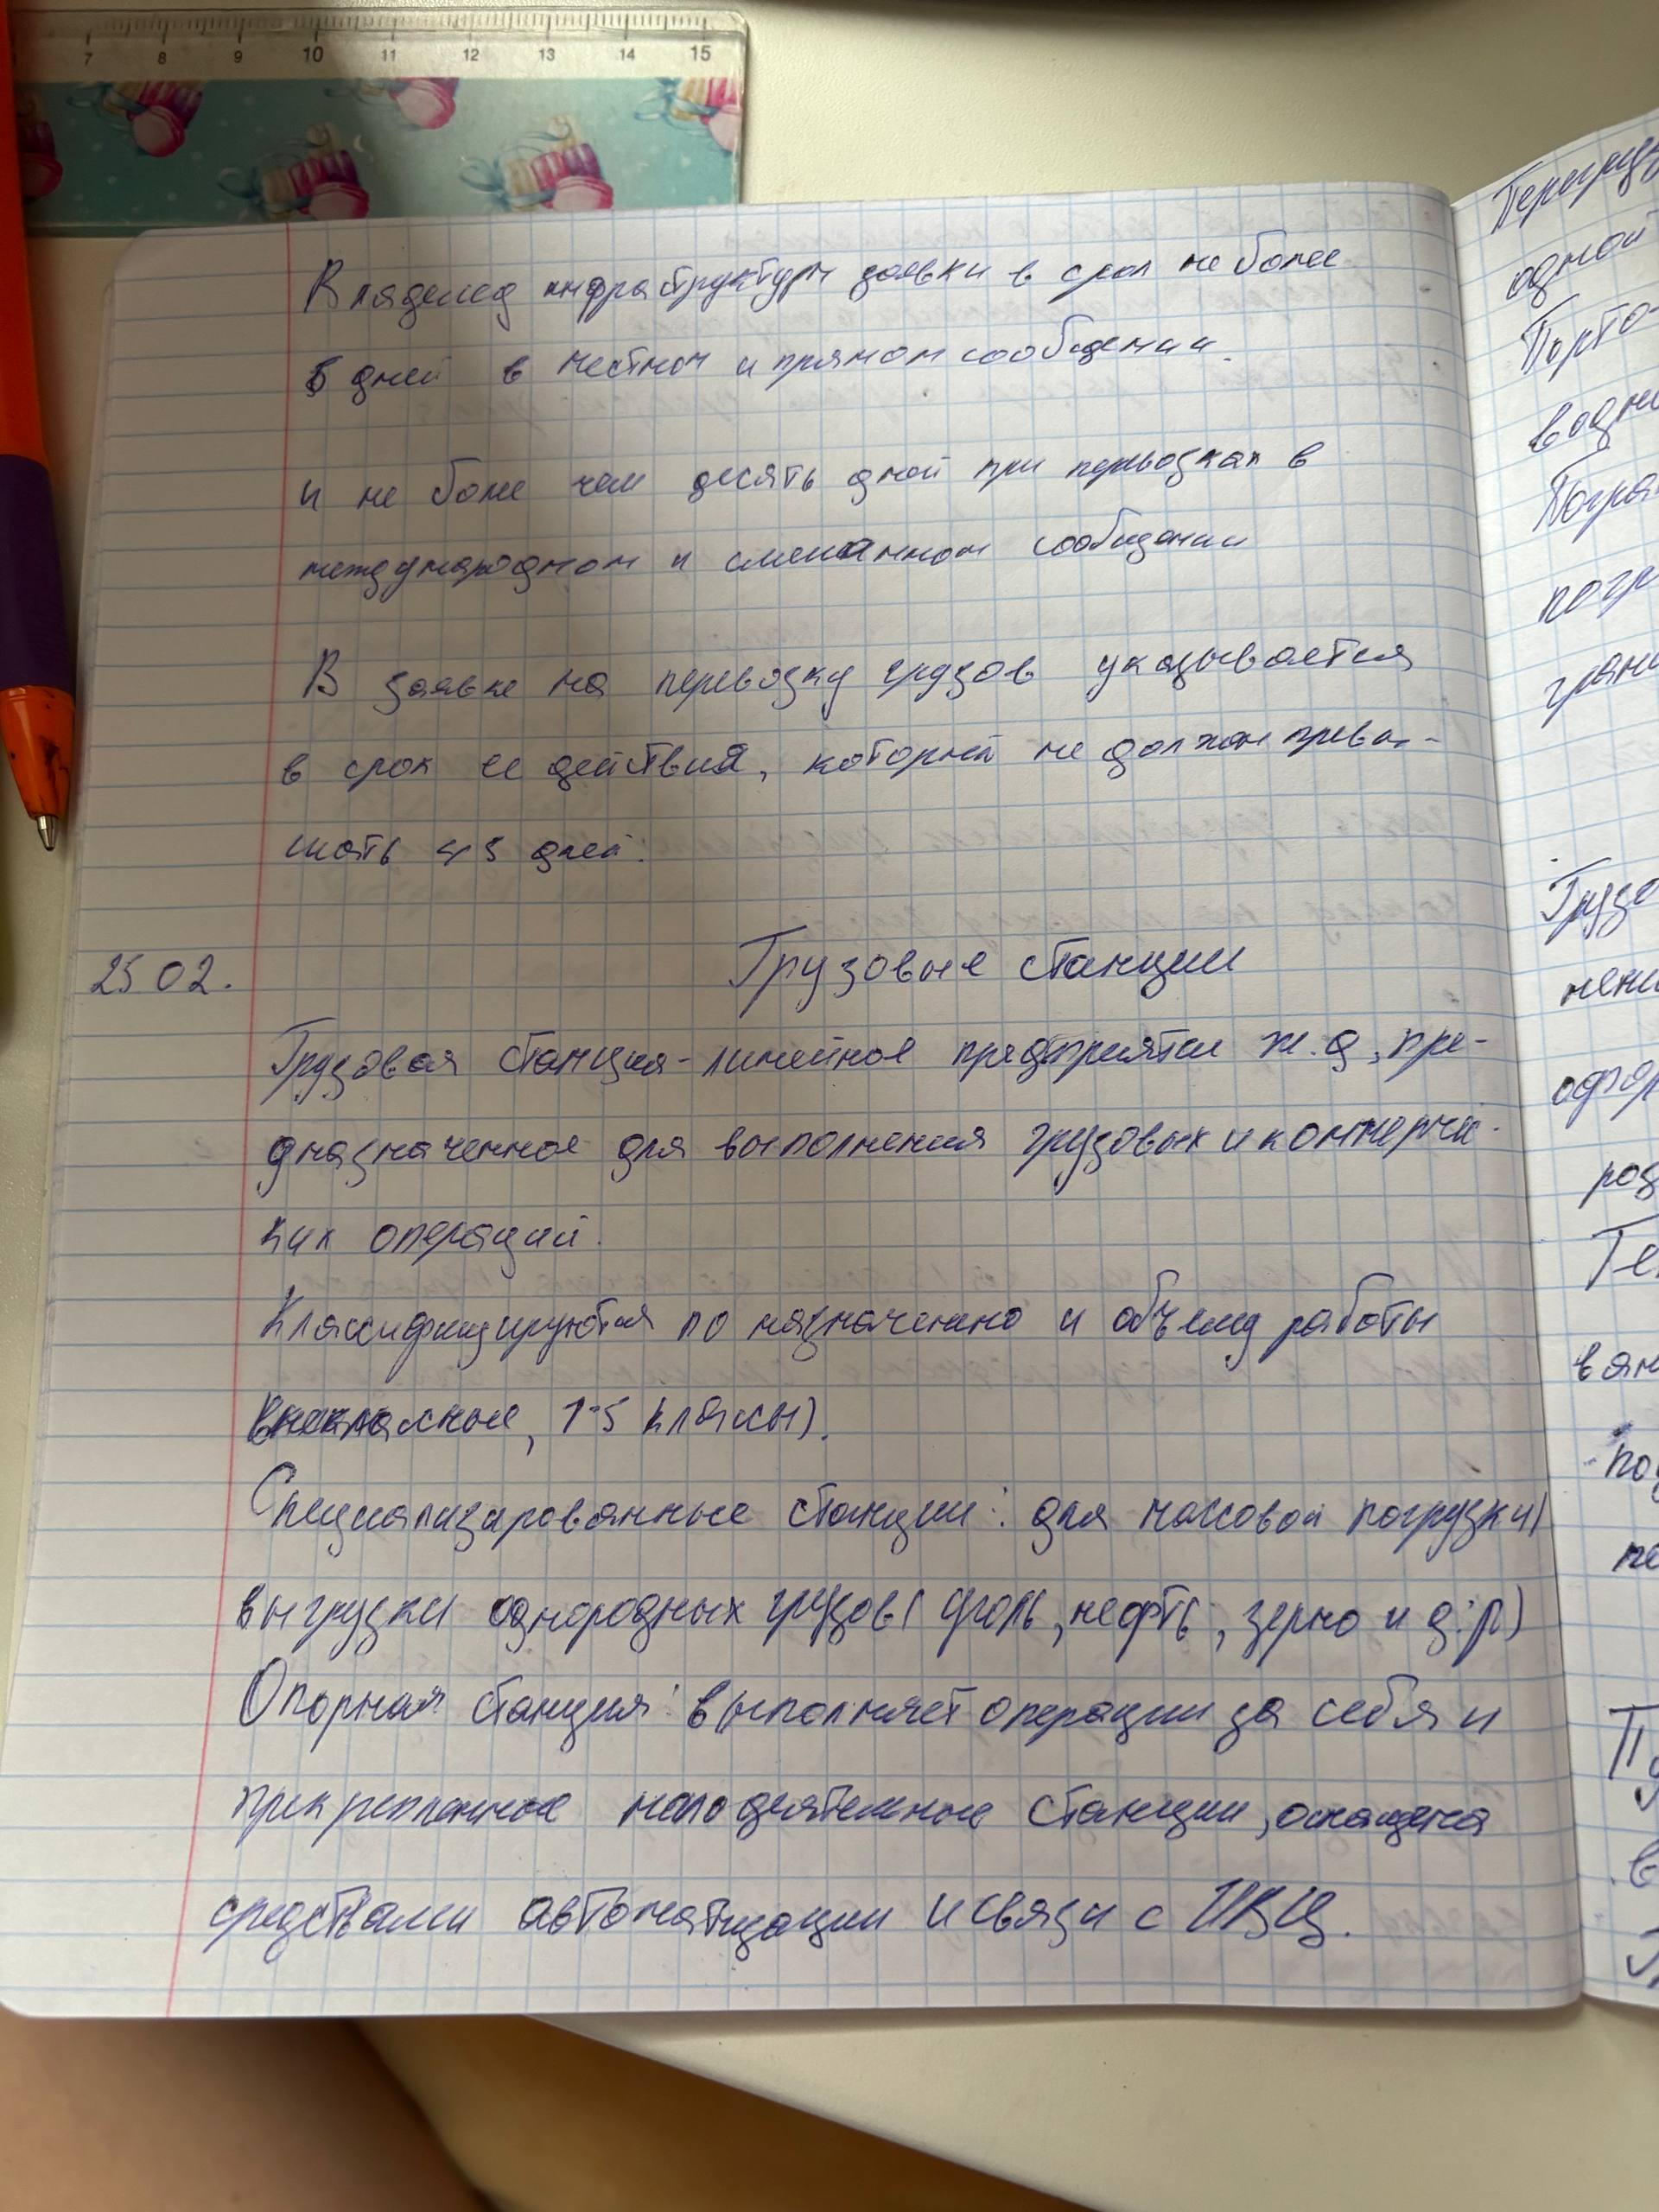 7 8 9 10 11 12 13 14 15
Владелец инфраструктуры заявки в срок не более
5 дней в местном и прямом сообщении.
и не более чем десять дней при перевозках в
международном и смешанном сообщении
В заявке на перевозку грузов указывается
в срок ее действия, который не должен превы-
шать 45 дней.
25 02. Грузовые станции
Грузовая станция - линейное предприятие ж.д, пре-
дназначенное для выполнения грузовых и коммерчес-
ких операций.
Классифицируются по назначению и объему работы
внеклассные, 1-5 классы).
Специализированные станции: для массовой погрузки/
выгрузки однородных грузов (уголь, нефть, зерно и д.р)
Опорная станция: выполняет операции за себя и
прикрепленные малодеятельные станции, оснащена
средствами автоматизации и связи с ИВЦ.
одной
Порто-
водн
погр
грани
Грузо
нени
офор
роз
Те
вян
под
пе
П
в